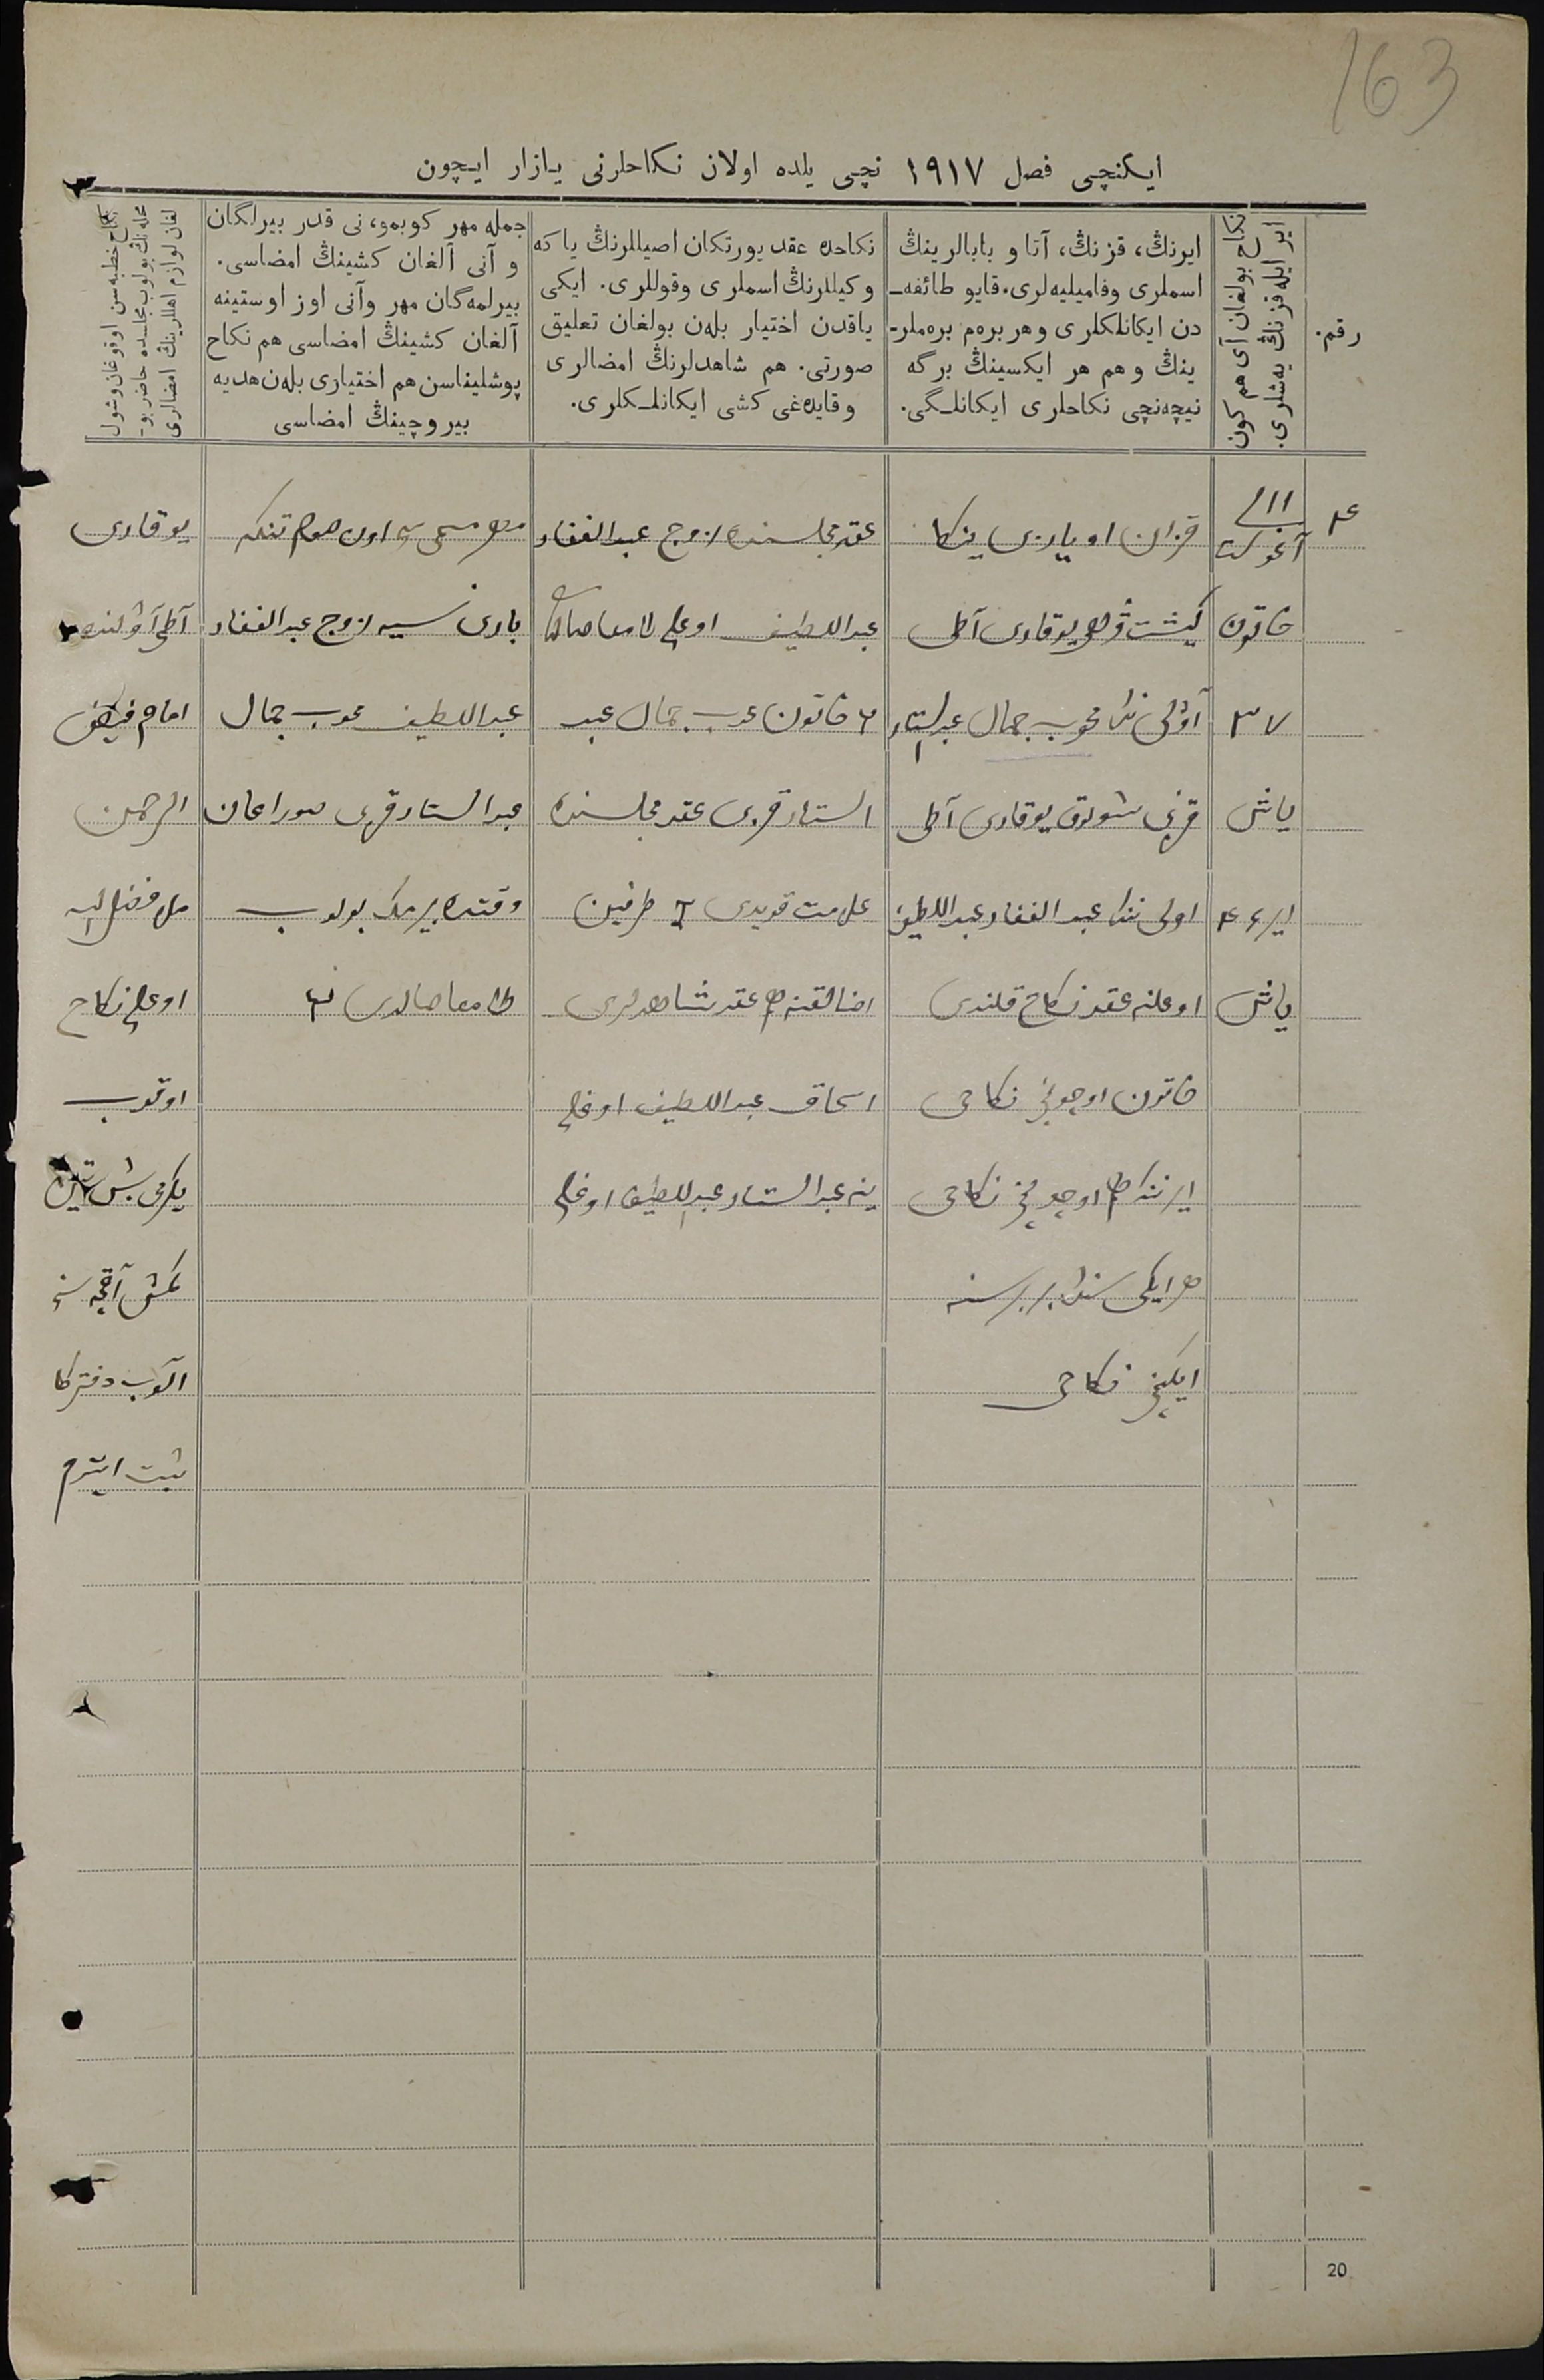 163
ایکنچی فصل ۱۹۱۷ نچی یلده اولان نکاحلرنی یازار ایچون
رقم.
نکاح بولغان آی هم کون
ایر ایله قزنڭ یه‌شلری.
ایرنڭ، قزنڭ، آتا و بابالرینڭ
اسملری وفامیلیه‌لری. قایو طائفه‌ـ
دن ایکانلکلری و هر بره‌م بره‌ملرـ
ینڭ و هم هر ایکسینڭ برگه
نیچه‌نچی نکاحلری ایکانلـگی.
نکاحده عقد یورتکان اصیللرنڭ یا که
وکیللرنڭ اسملری وقوللری. ایکی
یاقدن اختیار بله‌ن بولغان تعلیق
صورتی. هم شاهدلرنڭ امضالری
وقایده‌غی کشی ایکانلـکلری.
جمله مهر کوبمو، نی قدر بیرلگان
و آنی آلغان کشینڭ امضاسی.
بیرلمه‌گان مهر وآنی اوز اوستینه
آلغان کشینڭ امضاسی هم نکاح
پوشلیناسن هم اختیاری بله‌ن هدیه
بیروچینڭ امضاسی
نکاح خطبه‌سن اوقوغان وشول
محله‌نڭ بولوب مجلسده حاضر بوـ
لغان لوازم اهللرینڭ امضالری
۴
۱۱
آغوست
خاتون
۳۷
یاش
ایر ۴۴
یاش
قزان اویازی
یوقاری آطی
آولی ننڭ محبوب جمال عبدالستار
قزینی شولوق یوقاری آطی
اولی ننڭ عبدالغفار عبداللطیف
اوغلنه عقد نکاح قلندی
خاتون اوچونچی نکاحی
ایرننڭ هم اوچونچی نکاحی
هر ایکی سننڭ بر برسنه
ایکنچی نکاحی
عقد مجلسنده زوج عبدالغفار
عبداللطیف اوغلی
خاتون محبوب جمال عبد
الستار قزی عقد مجلسنده
علامت قویدی طرفین
عقد شاهدلری
اسحاق عبداللطیف اوغلی
ینه عبدالستار عبداللطیف اوغلی
مهر مسمی سی اون تنکه
باری سیه زوج عبدالغفار
عبداللطیف محبوب جمال
عبدالستار قزی صوراغان
وقتده بیرمک بولوب
یوقاری
آطی آولننده
امام
الرحمن
ملا فضل الله
اوغلی نکاح
اوقوب
یکرمی بش تین
کمش آقچه سن
آلوب دفترکا
ثبت ایتدم
20